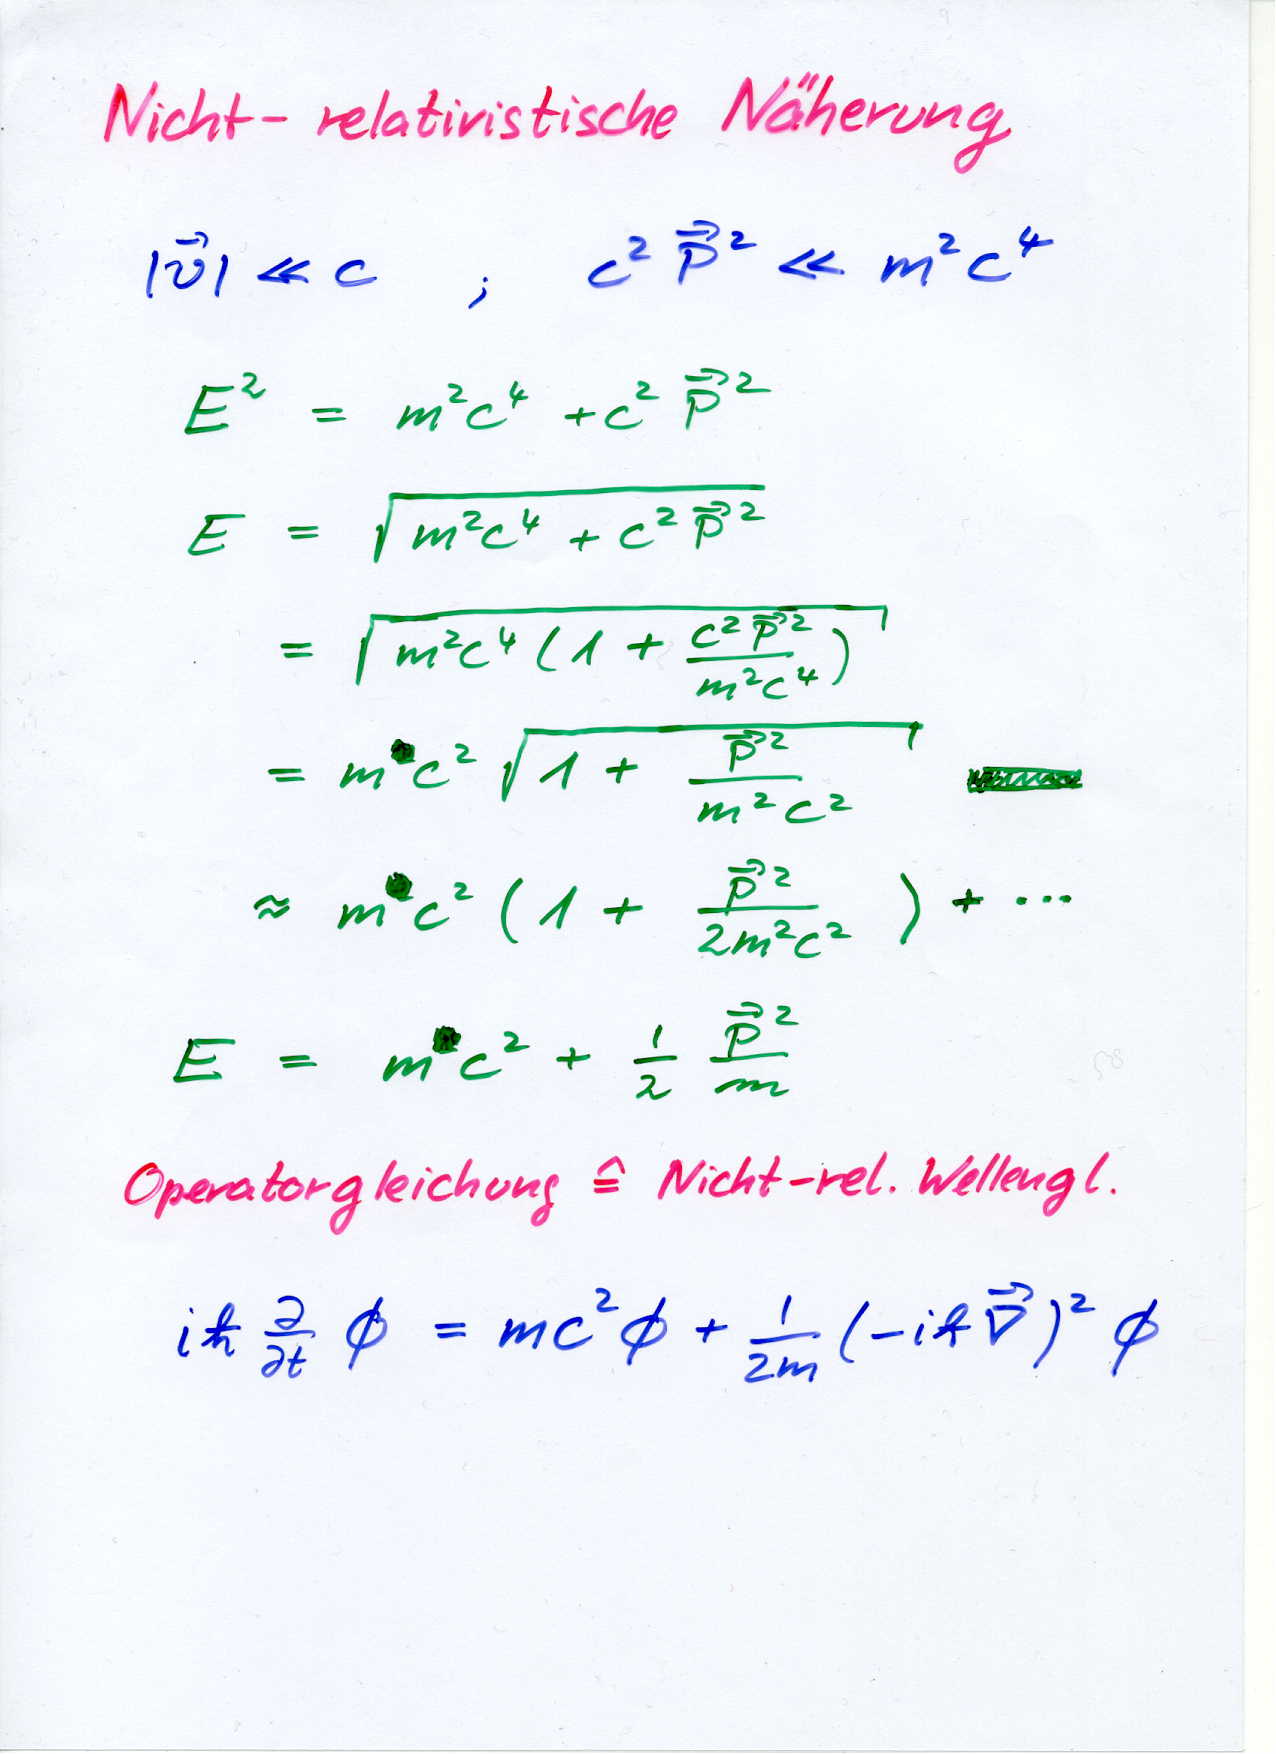 Nicht-relativistische Näherung
|v⃗| ≪ c ; c² p⃗² ≪ m²c⁴
E² = m²c⁴ + c² p⃗²
E = √(m²c⁴ + c² p⃗²)
= √(m²c⁴ (1 + c² p⃗² / m²c⁴))
= m c² √(1 + p⃗² / m²c²)
≈ m c² (1 + p⃗² / 2m²c²) + ...
E = m c² + 1/2 p⃗²/m
Operatorgleichung ≙ Nicht-rel. Wellengl.
iħ ∂/∂t ϕ = mc² ϕ + 1/2m (-iħ ∇⃗)² ϕ